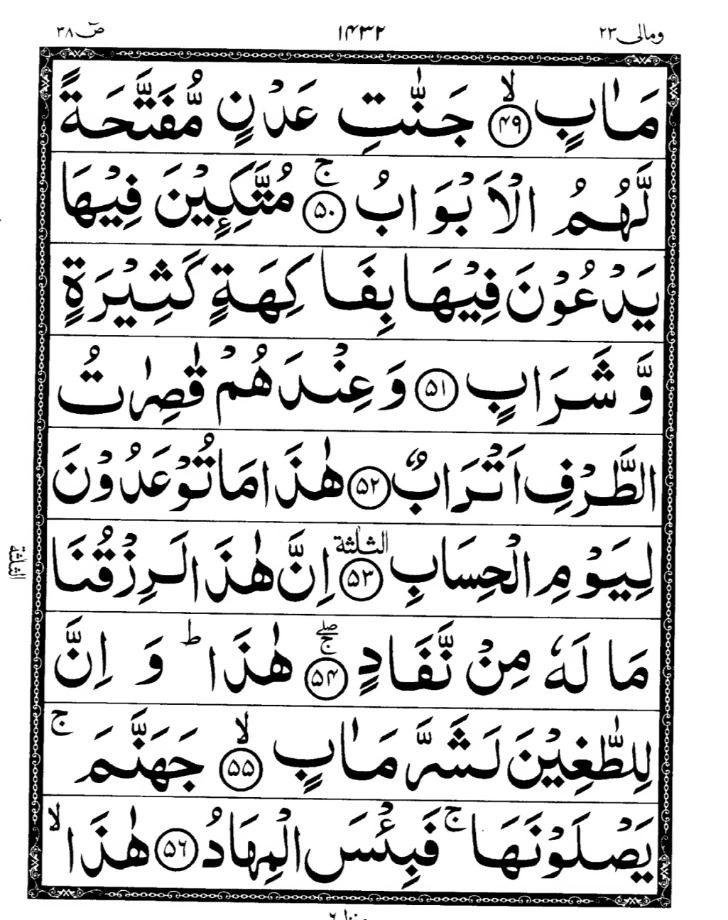 ومالی ۲۳ ۱۴۳۲ صٓ ۳۸
مَاٰبٍ ۙ﴿۴۹﴾ جَنّٰتِ عَدْنٍ مُّفَتَّحَةً
لَّهُمُ الْاَبْوَابُ ۚ﴿۵۰﴾ مُتَّكِـِٕيْنَ فِيْهَا
يَدْعُوْنَ فِيْهَا بِفَاكِهَةٍ كَثِيْرَةٍ
وَّ شَرَابٍ ﴿۵۱﴾ وَ عِنْدَهُمْ قٰصِرٰتُ
الطَّرْفِ اَتْرَابٌ ﴿۵۲﴾ هٰذَا مَا تُوْعَدُوْنَ
لِيَوْمِ الْحِسَابِ الثلثة ﴿۵۳﴾ اِنَّ هٰذَا لَرِزْقُنَا
الثلثة
مَا لَهٗ مِنْ نَّفَادٍ ۚۖ ﴿۵۴﴾ هٰذَا ؕ وَ اِنَّ
لِلطّٰغِيْنَ لَشَرَّ مَاٰبٍ ۙ﴿۵۵﴾ جَهَنَّمَ ۚ
يَصْلَوْنَهَا ۚ فَبِئْسَ الْمِهَادُ ﴿۵۶﴾ هٰذَا ۙ